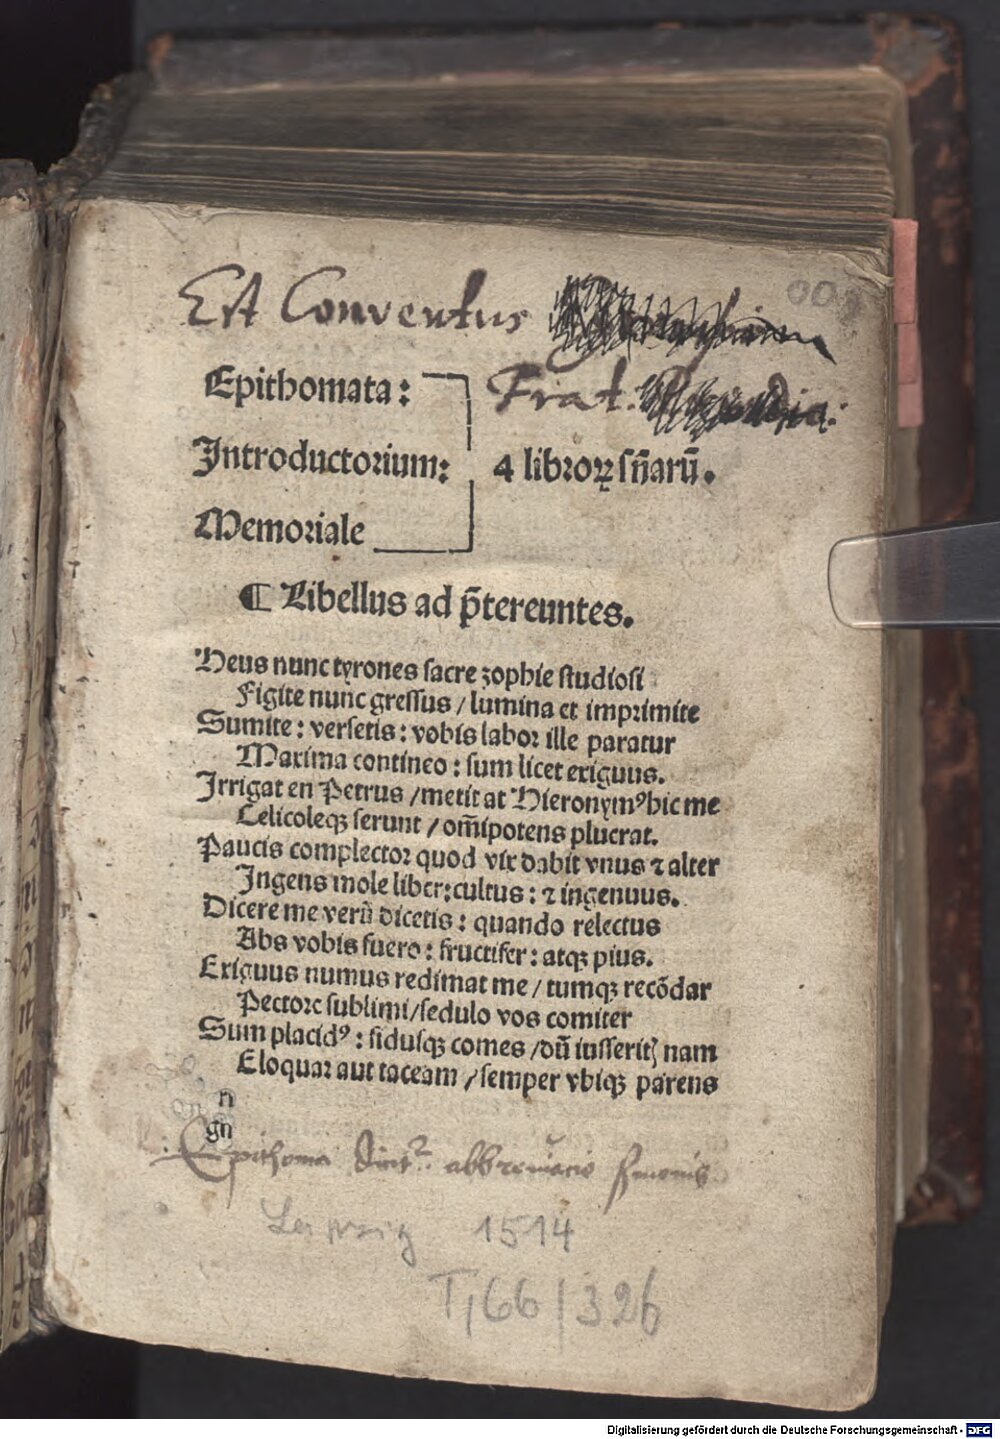 Est Conventus
Frat.
Epithomata:
Introductorium: 4 libroꝝ sn̄arū.
Memoriale
¶ Libellus ad p̄tereuntes.
Heus nunc tyrones sacre zophie studiosi
Figite nunc gressus / lumina et imprimite
Sumite: versetis: vobis labor ille paratur
Maxima contineo: sum licet exiguus.
Irrigat en Petrus / metit at Hieronymꝰ hic me
Celicoleqꝫ serunt / om̄ipotens pluerat.
Paucis complector quod vix dabit vnus ⁊ alter
Ingens mole liber: cultus: ⁊ ingenuus.
Dicere me verū dicetis: quando relectus
Abs vobis fuero: fructifer: atqꝫ pius.
Exiguus numus redimat me / tumqꝫ recōdar
Pectore sublimi / sedulo vos comiter
Sum placidꝰ: fidusqꝫ comes / dū iusseritꝭ nam
Eloquar aut taceam / semper vbiqꝫ parens
n
gn
Epithoma abbreviacio
Leipzig 1514
T,66/326
Digitalisierung gefördert durch die Deutsche Forschungsgemeinschaft - DFG